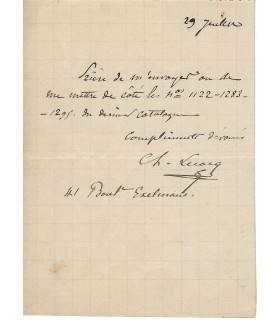 29 juillet
Prière de m'envoyer ou de
me mettre de côté les nos 1122-1283-
-1295. du dernier catalogue
compliments
Ch. Lecocq
41 Boulᵈ Exelmans.